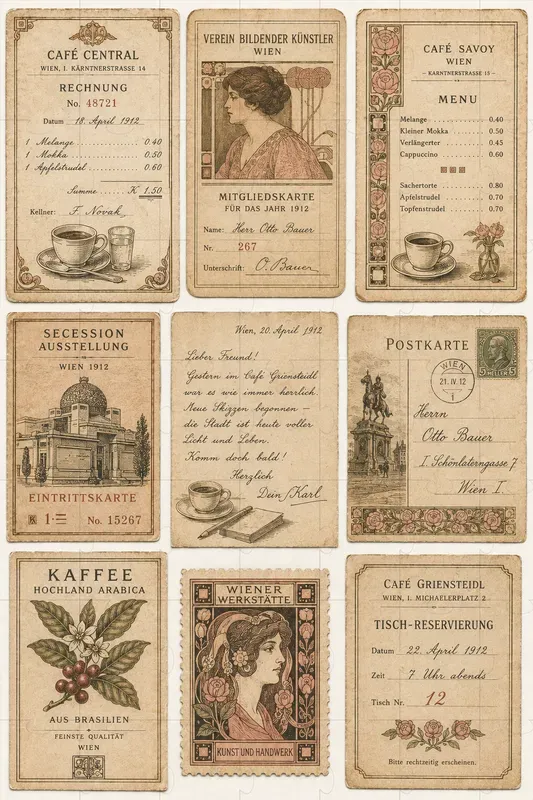 CAFÉ CENTRAL
WIEN, I. KÄRNTNERSTRASSE 14
RECHNUNG
No. 48721
Datum 18. April 1912
1 Melange 0.40
1 Mokka 0.50
1 Apfelstrudel 0.60
Summe K 1.50
Kellner: F. Novak
VEREIN BILDENDER KÜNSTLER
WIEN
MITGLIEDSKARTE
FÜR DAS JAHR 1912
Name: Herr Otto Bauer
Nr. 267
Unterschrift: O. Bauer
CAFÉ SAVOY
WIEN
– KARNTNERSTRASSE 15 –
MENU
Melange 0.40
Kleiner Mokka 0.50
Verlängerter 0.45
Cappuccino 0.60
Sachertorte 0.80
Apfelstrudel 0.70
Topfenstrudel 0.70
SECESSION
AUSSTELLUNG
WIEN 1912
EINTRITTSKARTE
No. 15267
Wien, 20. April 1912
Lieber Freund!
Gestern im Café Griensteidl
war es wie immer herrlich.
Neue Skizzen begonnen –
die Stadt ist heute voller
Licht und Leben.
Komm doch bald!
Herzlich
Dein Karl
POSTKARTE
5 HELLER 5
WIEN
21. IV. 12
1
Herrn
Otto Bauer
I. Schönlaterngasse 7
Wien I.
KAFFEE
HOCHLAND ARABICA
AUS BRASILIEN
FEINSTE QUALITÄT
WIEN
WIENER
WERKSTÄTTE
KUNST UND HANDWERK
CAFÉ GRIENSTEIDL
WIEN, I. MICHAELERPLATZ 2
TISCH-RESERVIERUNG
Datum 22. April 1912
Zeit 7 Uhr abends
Tisch Nr. 12
Bitte rechtzeitig erscheinen.